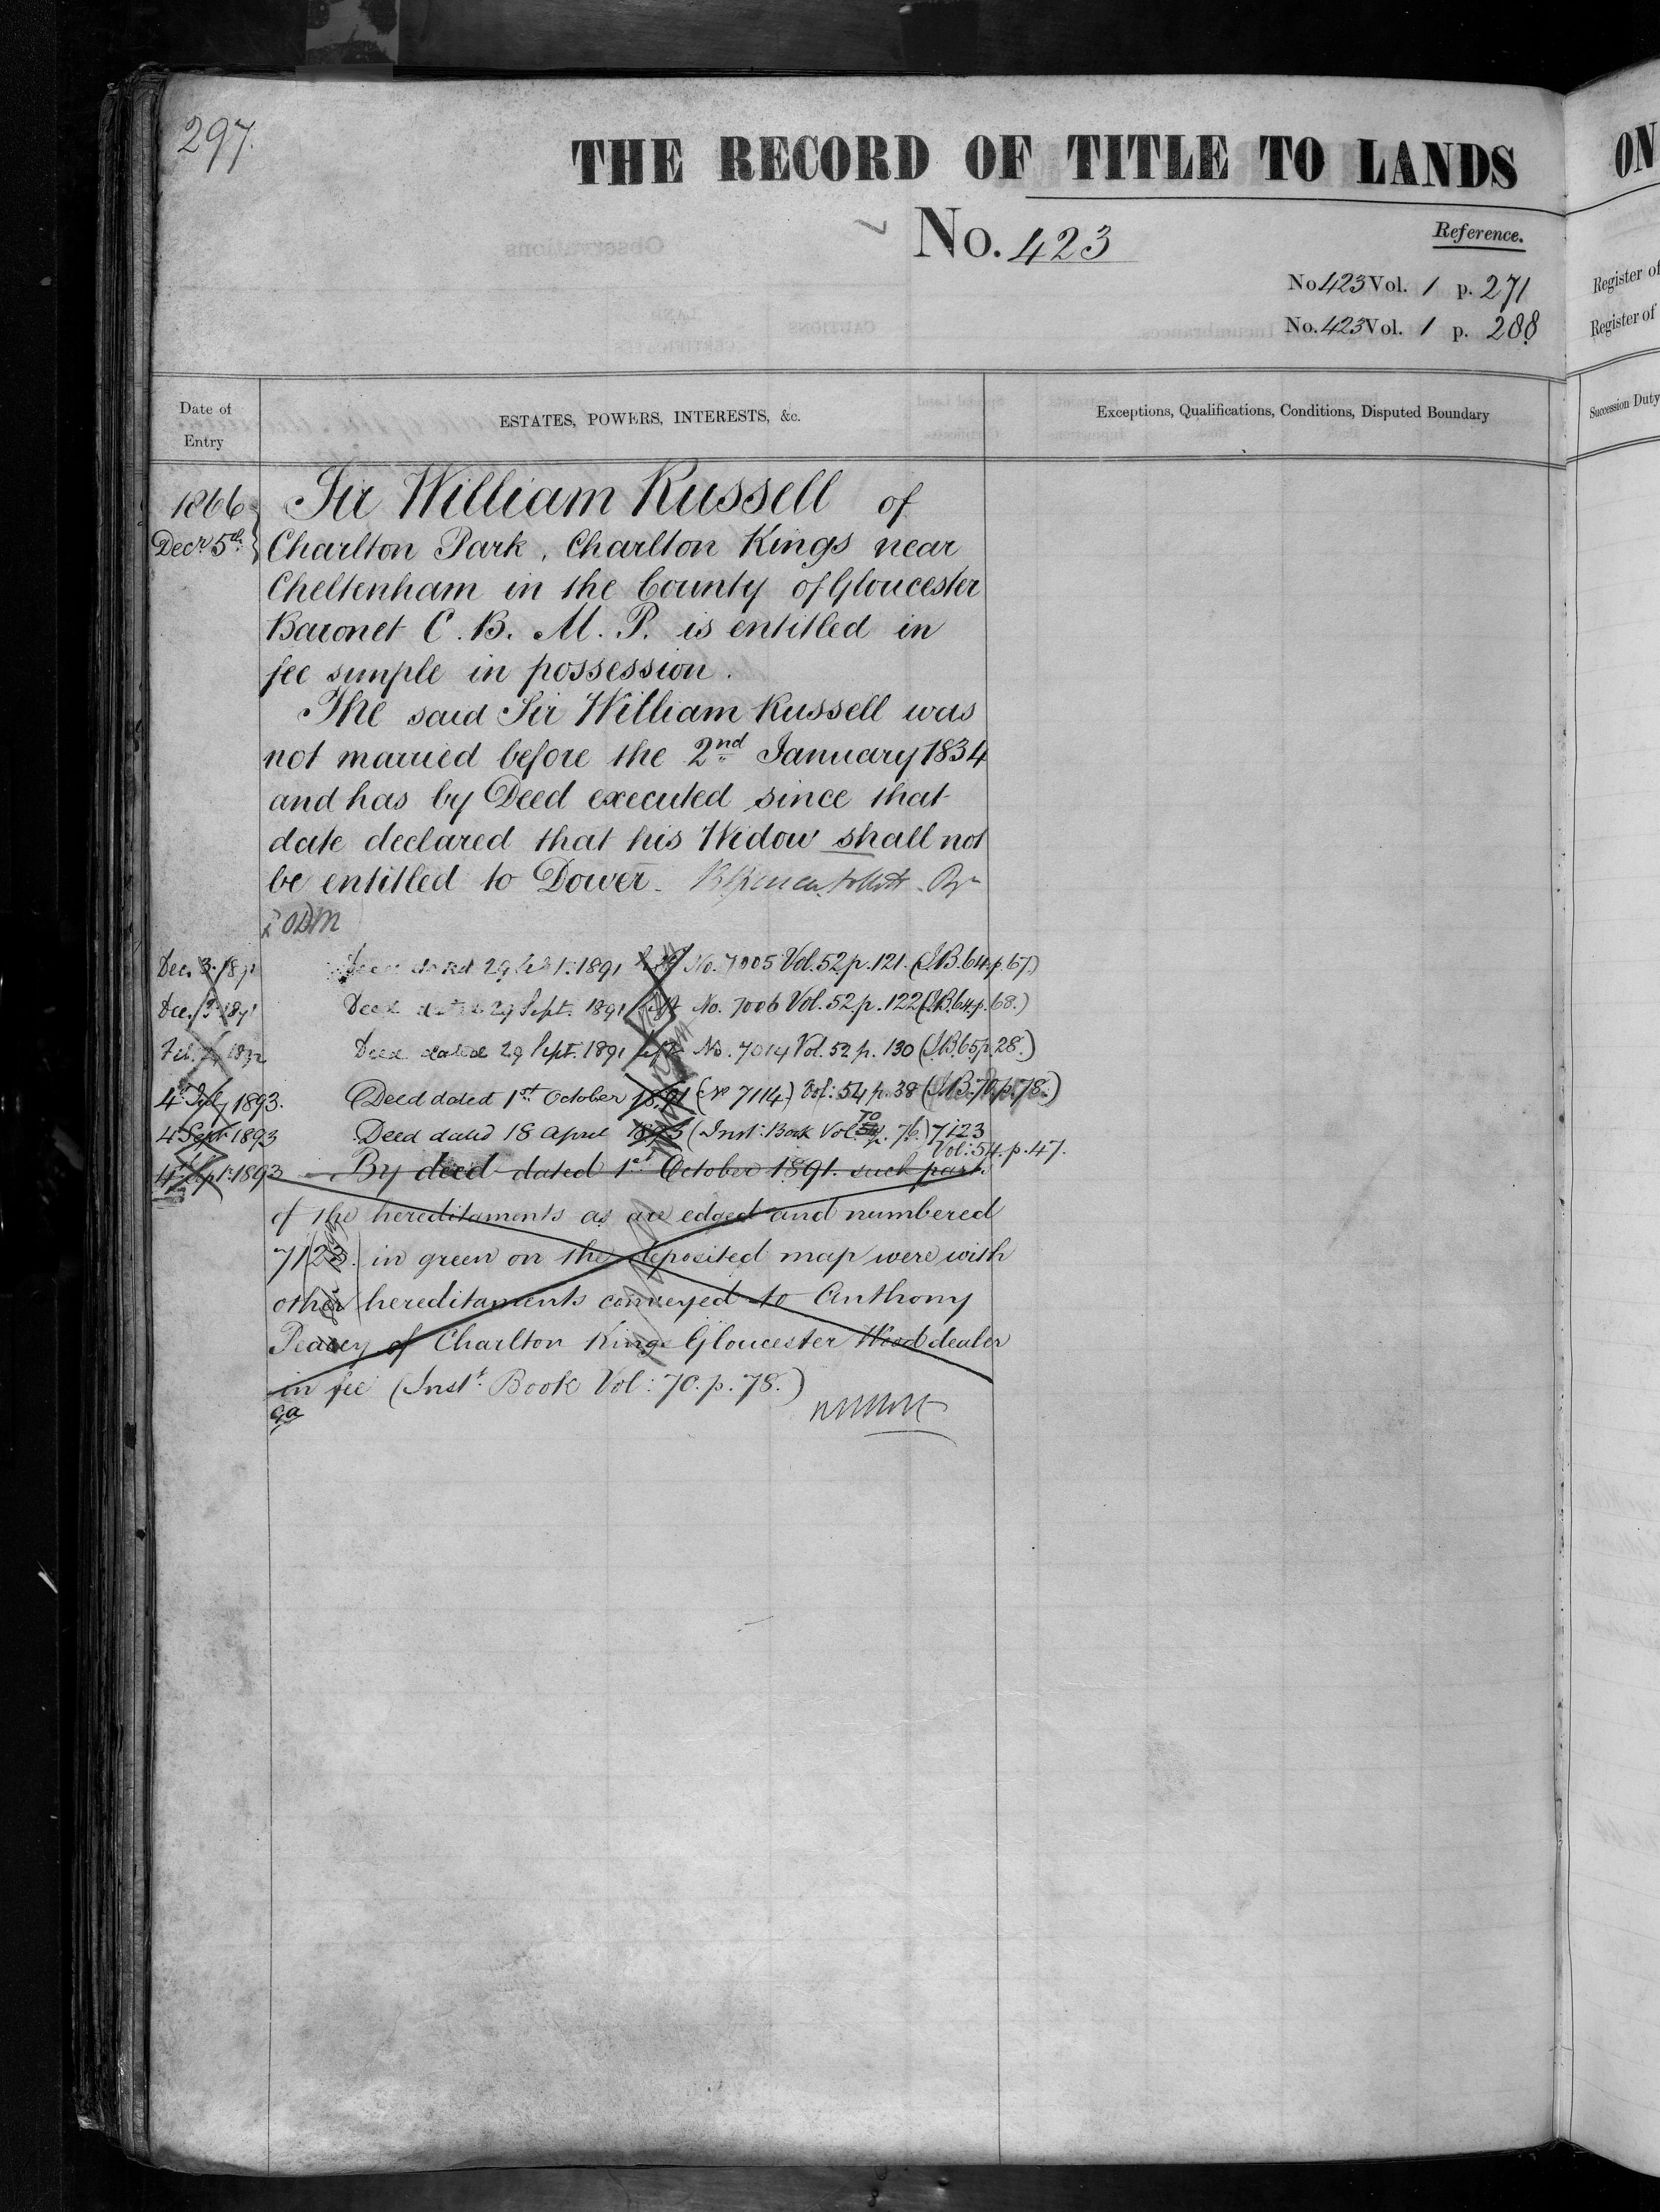 297.
THE RECORD OF TITLE TO LANDS
ON
No. 423
Reference.
No 423 Vol. 1 p. 271
Register of
No. 423 Vol. 1 p. 288
Register of
Date of Entry
ESTATES, POWERS, INTERESTS, &c.
Exceptions, Qualifications, Conditions, Disputed Boundary
Succession Duty
1866 Sir William Russell of
Decr 5th Charlton Park, Charlton Kings near
Cheltenham in the County of Gloucester
Baronet C. B. M. P. is entitled in
fee simple in possession.
The said Sir William Russell was
not married before the 2nd January 1834
and has by Deed executed since that
date declared that his Widow shall not
be entitled to Dower.
Dec. 3. 1891 Deed dated 29 Sept. 1891 No. 7005 Vol. 52 p. 121. (I.B. 64. p. 67.)
Dec. 3. 1891 Deed dated 29 Sept. 1891 No. 7006 Vol. 52 p. 122 (I.B. 64. p. 68.)
Feb. 1892 Deed dated 29 Sept. 1891 No. 7014 Vol. 52 p. 130 (I.B. 65 p. 28.)
4 July 1893. Deed dated 1st October 1891 (No 7114) Vol: 54 p. 38 (I.B. 70. p. 78.)
4 Sept 1893 Deed dated 18 April 1893 (Inst: Book Vol. 70 p. 76.) 7123
Vol: 54. p. 47.
4 Sept. 1893 By deed dated 1st October 1891. such part.
of the hereditaments as are edged and numbered
7123. in green on the deposited map were with
other hereditaments conveyed to Anthony
Peacey of Charlton Kings Gloucester Wood dealer
in fee (Instt. Book Vol: 70. p. 78.)